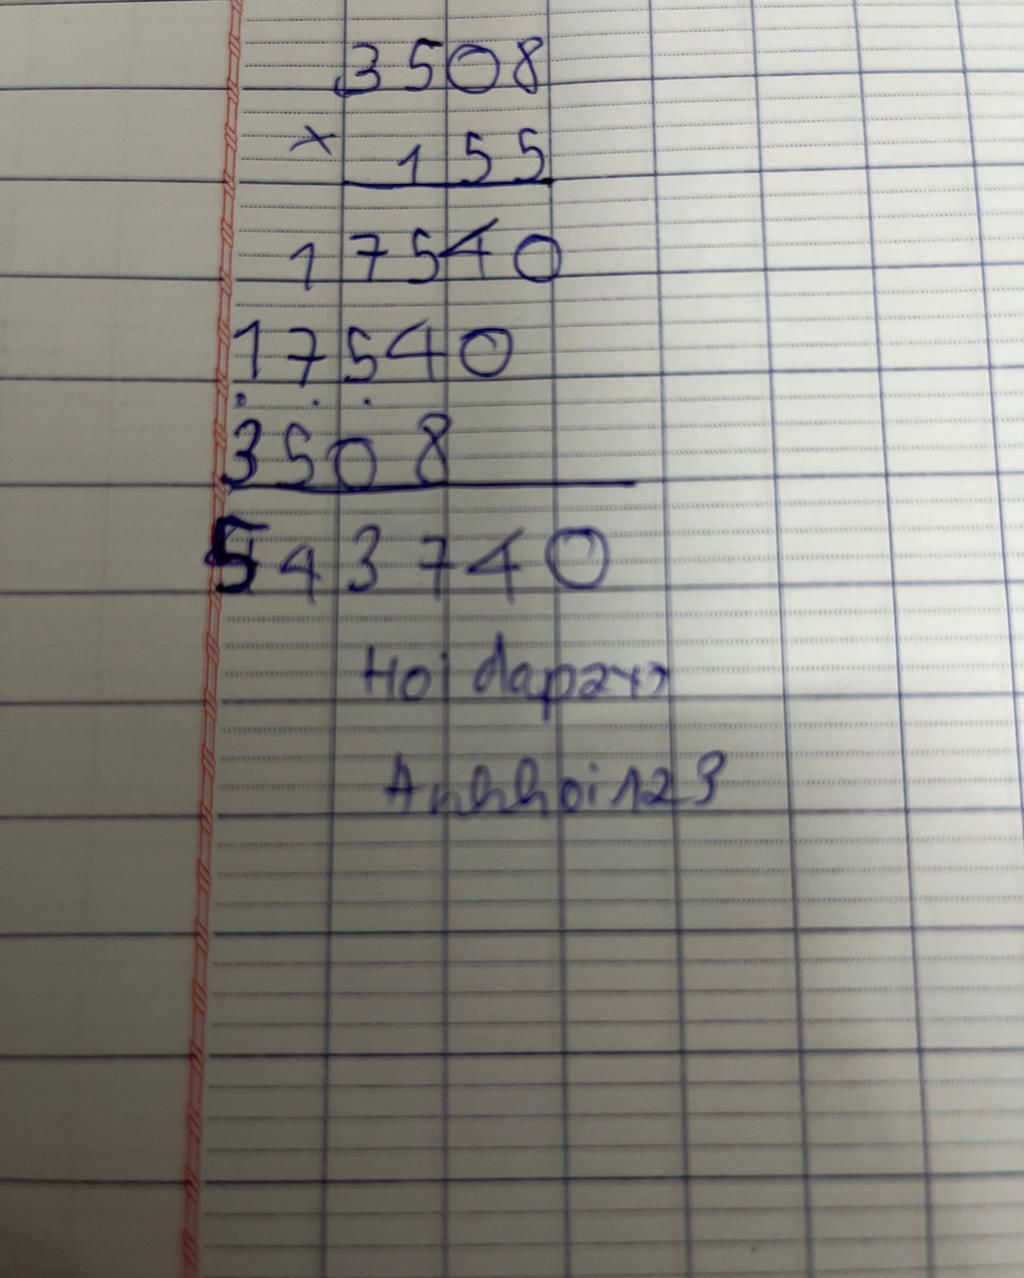 3508
× 155
17540
17540
3508
543740
Hoidap247
Anhhoi123